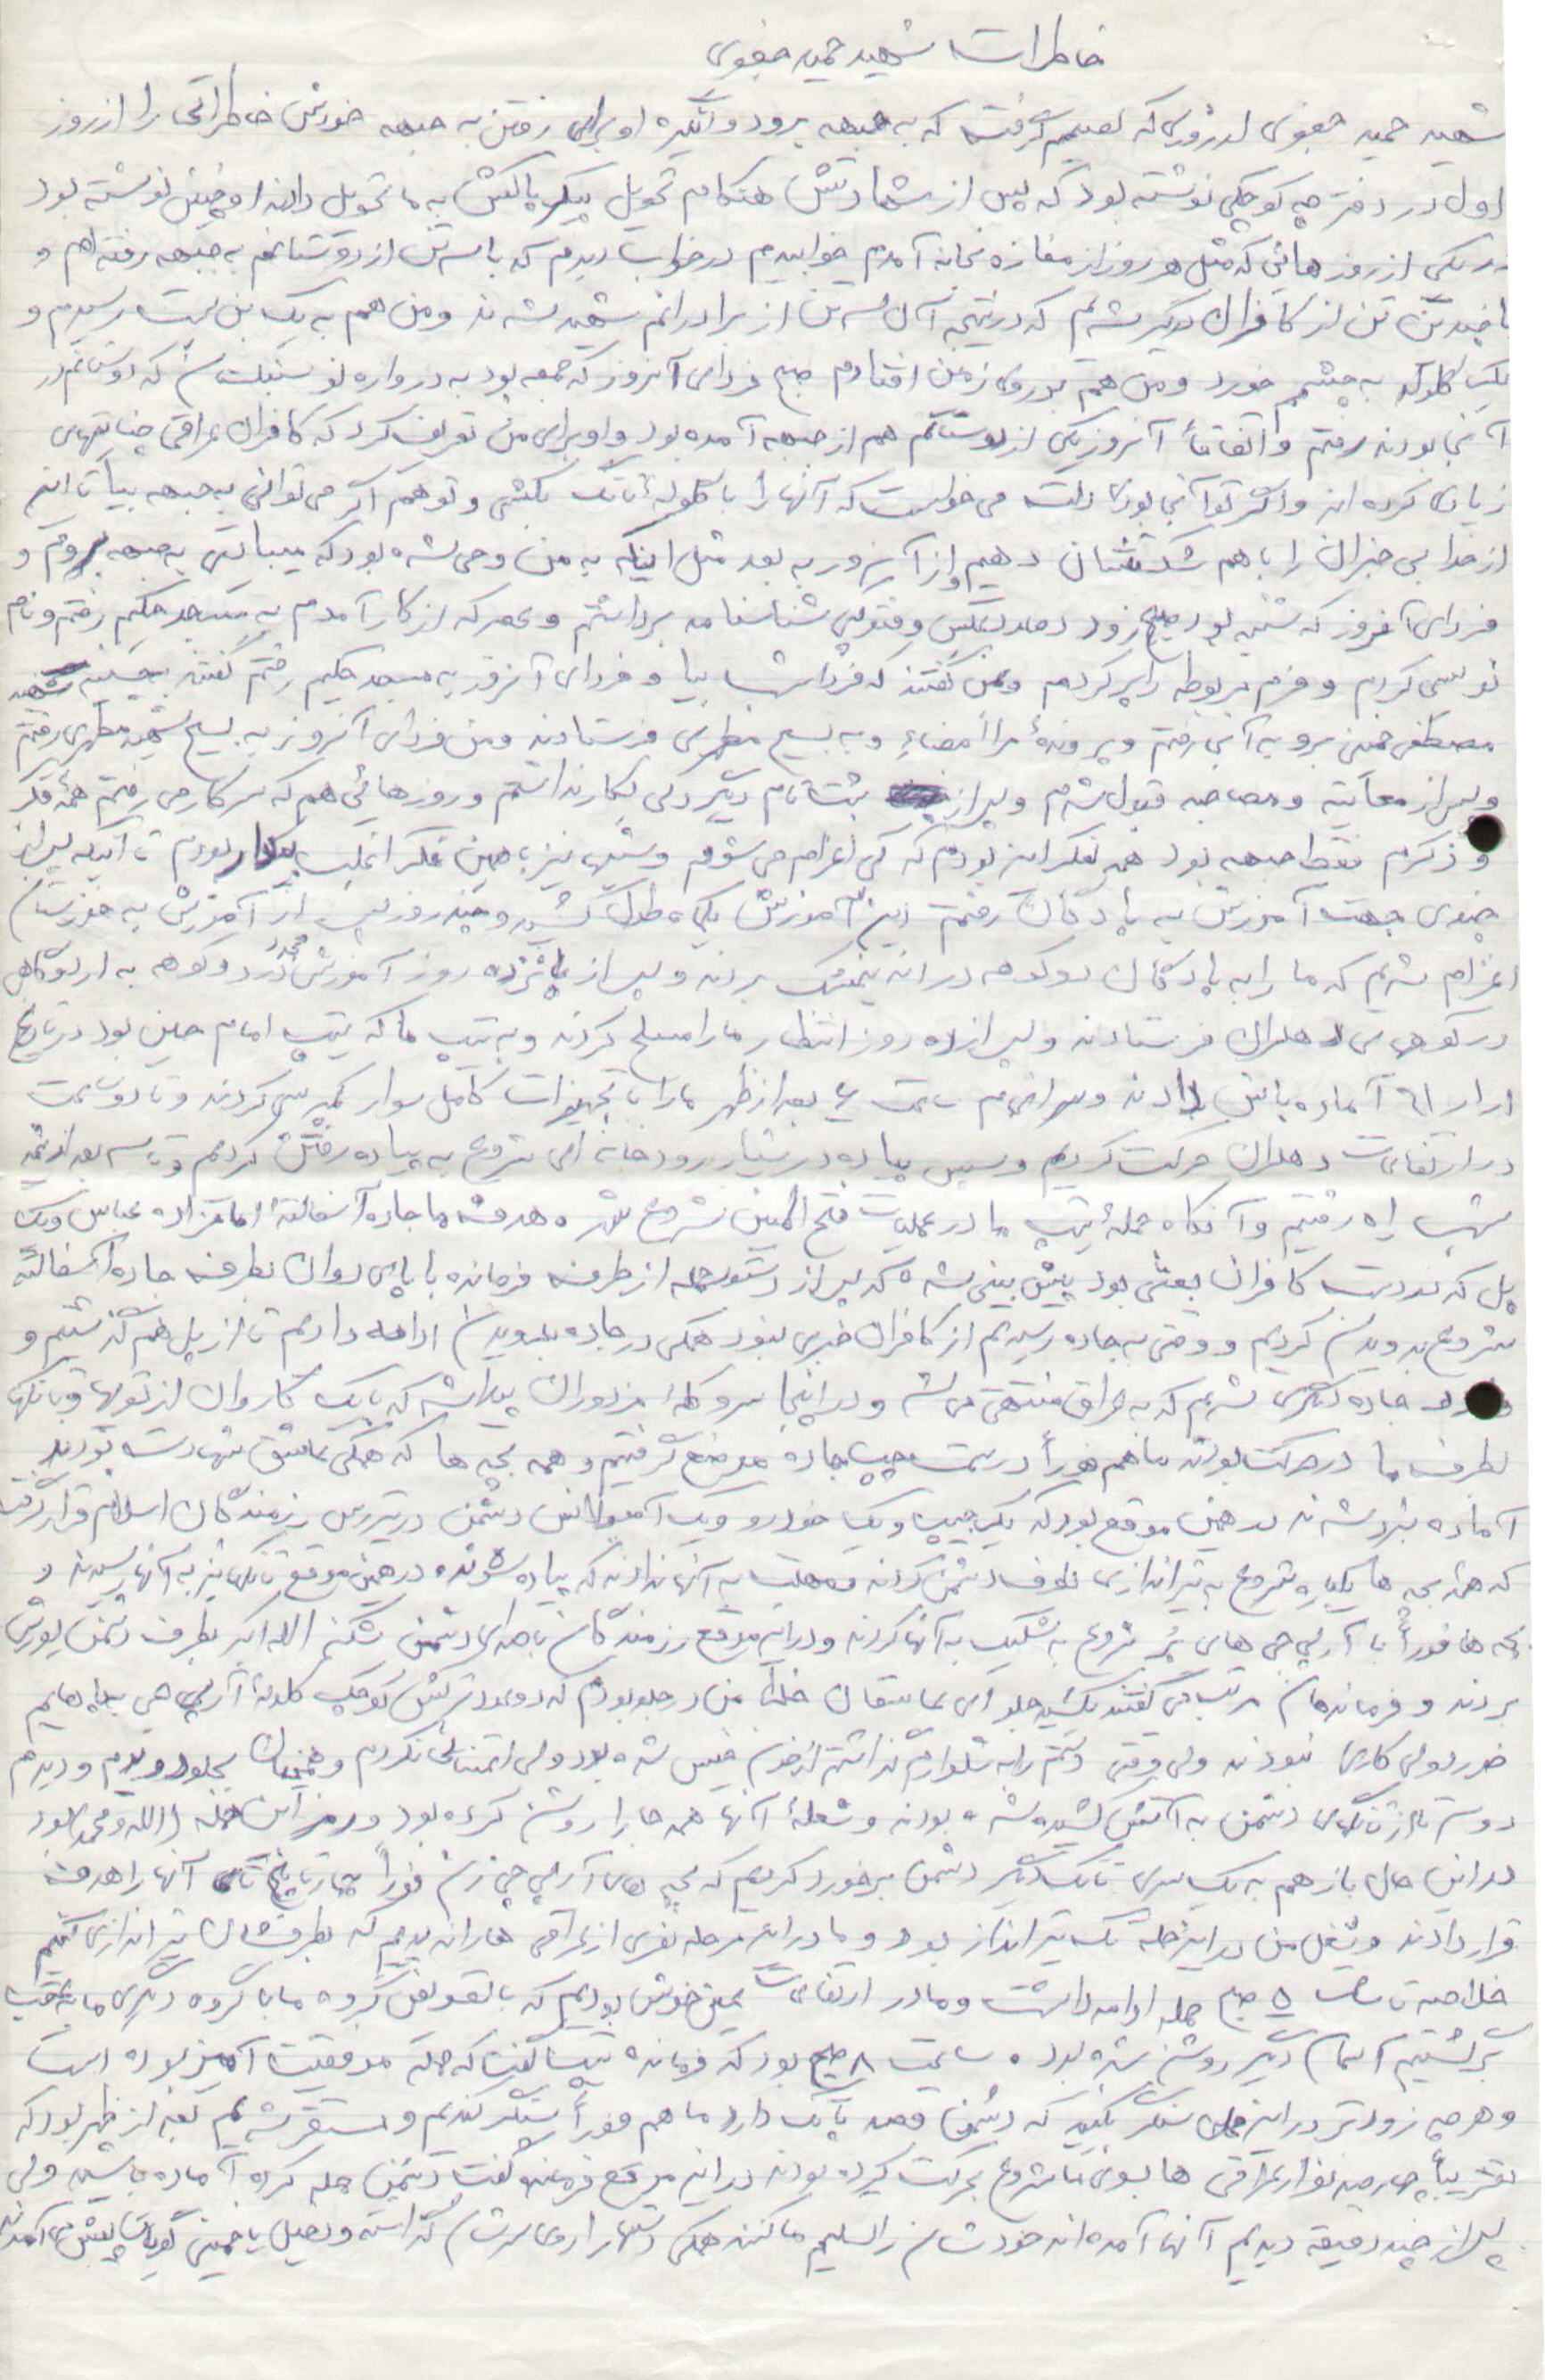 خاطرات شهید حمید جعفری
شهید حمید جعفری از روزی که تصمیم گرفت که به جبهه برود و انگیزه او برای رفتن به جبهه خودش خاطراتی را از روز
اول در دفترچه کوچکی نوشته بود که پس از شهادتش هنگام تحویل پیکر پاکش به ما تحویل دادند او چنین نوشته بود
در یکی از روزهائی که مثل هر روز از مغازه بخانه آمدم خوابیدم در خواب دیدم که با سه تن از دوستانم به جبهه رفته‌ام و
با چندین تن از کافران درگیر شدیم که در نتیجه آن سه تن از برادرانم شهید شدند و من هم به یک بن بست رسیدم و
یک گلوله به چشمم خورد و من هم بر روی زمین افتادم صبح فردای آنروز که جمعه بود به دروازه نو سنبلستان که دوستانم در
آنجا بودند رفتم و اتفاقاً آنروز یکی از دوستانم هم از جبهه آمده بود و او برای من تعریف کرد که کافران عراقی جنایتهای
زیادی کرده‌اند و اگر تو آنجا بودی دلت می خواست که آنها را با گلوله تانک بکشی و تو هم اگر می توانی به جبهه بیا تا این
از خدا بی خبران را با هم شکستشان دهیم و از آنروز به بعد مثل اینکه به من وحی شده بود که میبایستی به جبهه بروم و
فردای آنروز که شنبه بود صبح زود عکس و فتوکپی شناسنامه برداشتم و عصر که از کار آمدم به مسجد حکیم رفتم و نام
نویسی کردم و فرم مربوطه را پر کردم و بمن گفتند که فردا شب بیا و فردای آنروز به مسجد حکیم رفتم گفتند به حسینیه شهید
مصطفی خمینی برو به آنجا رفتم و پرونده مرا امضاء و به بسیج مطهری فرستادند و من فردای آنروز به بسیج شهید مطهری رفتم
و پس از معاینه و مصاحبه قبول شدم و پس از ثبت نام دیگر دلی بکار نداشتم و روزهائی هم که سر کار می رفتم همه فکر
و ذکرم فقط جبهه بود همه بفکر این بودم که کی اعزام می شوم و شبها نیز با همین فکر اغلب بیدار بودم تا آنکه پس از
چندی جهت آموزش به پادگان رفتم این آموزش یکماه طول کشید و چند روز پس از آموزش به خوزستان
اعزام شدیم که ما را به پادگان دوکوهه در اندیمشک بردند و پس از پانزده روز آموزش مجدد در دوکوهه به اردوگاهی
در کوههای دهلران فرستادند و پس از ده روز انتظار ما را مسلح کردند و به تیپ ما که تیپ امام حسین بود در تاریخ
۱ر۱ر۶۱ آماده باش دادند و سرانجام ساعت ۴ بعد از ظهر ما را با تجهیزات کامل سوار کمپرسی کردند و تا دو ساعت
در ارتفاعات دهلران حرکت کردیم و سپس پیاده در شیار رودخانه‌ای شروع به پیاده رفتن کردیم و تا سه بعد از نیمه
شب راه رفتیم و آنگاه حمله تیپ ما در عملیات فتح المبین شروع شد هدف ما جاده آسفالته امامزاده عباس و یک
پل که در دست کافران بعثی بود پیش بینی شده که پس از دستور حمله از طرف فرمانده با پای دوان بطرف جاده آسفالته
شروع بدویدن کردیم و وقتی به جاده رسیدیم از کافران خبری نبود همگی در جاده بدویدن ادامه دادیم تا از پل هم گذشتیم و
وارد جاده دیگری شدیم که به عراق منتهی می شد و در اینجا سر و کله مزدوران پیدا شد که با یک کاروان از توپها و تانکها
بطرف ما در حرکت بودند ما هم فوراً در سمت چپ جاده موضع گرفتیم و همه بچه ها که همگی عاشق شهادت بودند
آماده نبرد شدند در همین موقع بود که یک جیپ و یک خودرو و یک آمبولانس دشمن در تیررس رزمندگان اسلام قرار گرفت
که همه بچه ها یکباره شروع به تیراندازی بطرف دشمن کردند و مهلت به آنها ندادند که پیاده شوند در همین موقع تانکها نیز به آنها رسیدند و
بچه ها فوراً با آرپی جی های پر شروع به شلیک به آنها کردند و در این موقع رزمندگان با صدای دشمن شکن الله اکبر بطرف دشمن یورش
بردند و فرماندهان مرتب می گفتند بکشید جلو ای عاشقان خدا من در جلو بودم که دو عدد ترکش کوچک گلوله آرپی جی به پاهایم
خورد ولی کاری نبودند ولی وقتی دستم را به شلوارم گذاشتم از خون خیس شده بود ولی اعتنائی نکردم و همچنان بجلو دویدم و دیدم
دو سه تا از تانکهای دشمن به آتش کشیده شده بودند و شعله آنها همه جا را روشن کرده بود و رمز این حمله (الله و محمد) بود
در این حال باز هم به یک سری تانک دیگر دشمن برخورد کردیم که بچه های آرپی جی زن فوراً چهار تا پنج تای آنها را هدف
قرار دادند و شغل من در این حمله تک تیرانداز بود و ما در این مرحله نفری از عراقی ها را ندیدیم که بطرفشان تیراندازی کنیم
خلاصه تا ساعت ۵ صبح حمله ادامه داشت و ما در ارتفاعات عین خوش بودیم که با تعویض گروه ما با گروه دیگری ما به عقب
برگشتیم آسمان دیگر روشن شده بود ه ساعت ۸ صبح بود که فرمانده تیپ گفت که حمله موفقیت آمیز بوده است
و هر چه زودتر در این محل سنگر بگیرید که دشمن قصد پاتک دارد ما هم فوراً سنگر کندیم و مستقر شدیم بعد از ظهر بود که
تقریباً چهارصد نفر از عراقی ها بسوی ما شروع بحرکت کرده بودند در این موقع فرمانده گفت دشمن حمله کرده آماده باشید ولی
پس از چند دقیقه دیدیم آنها آمده‌اند خودشان را تسلیم ما کنند همگی دستها را روی سرشان گذاشته و دخیل یا خمینی گویان پیش می آمدند